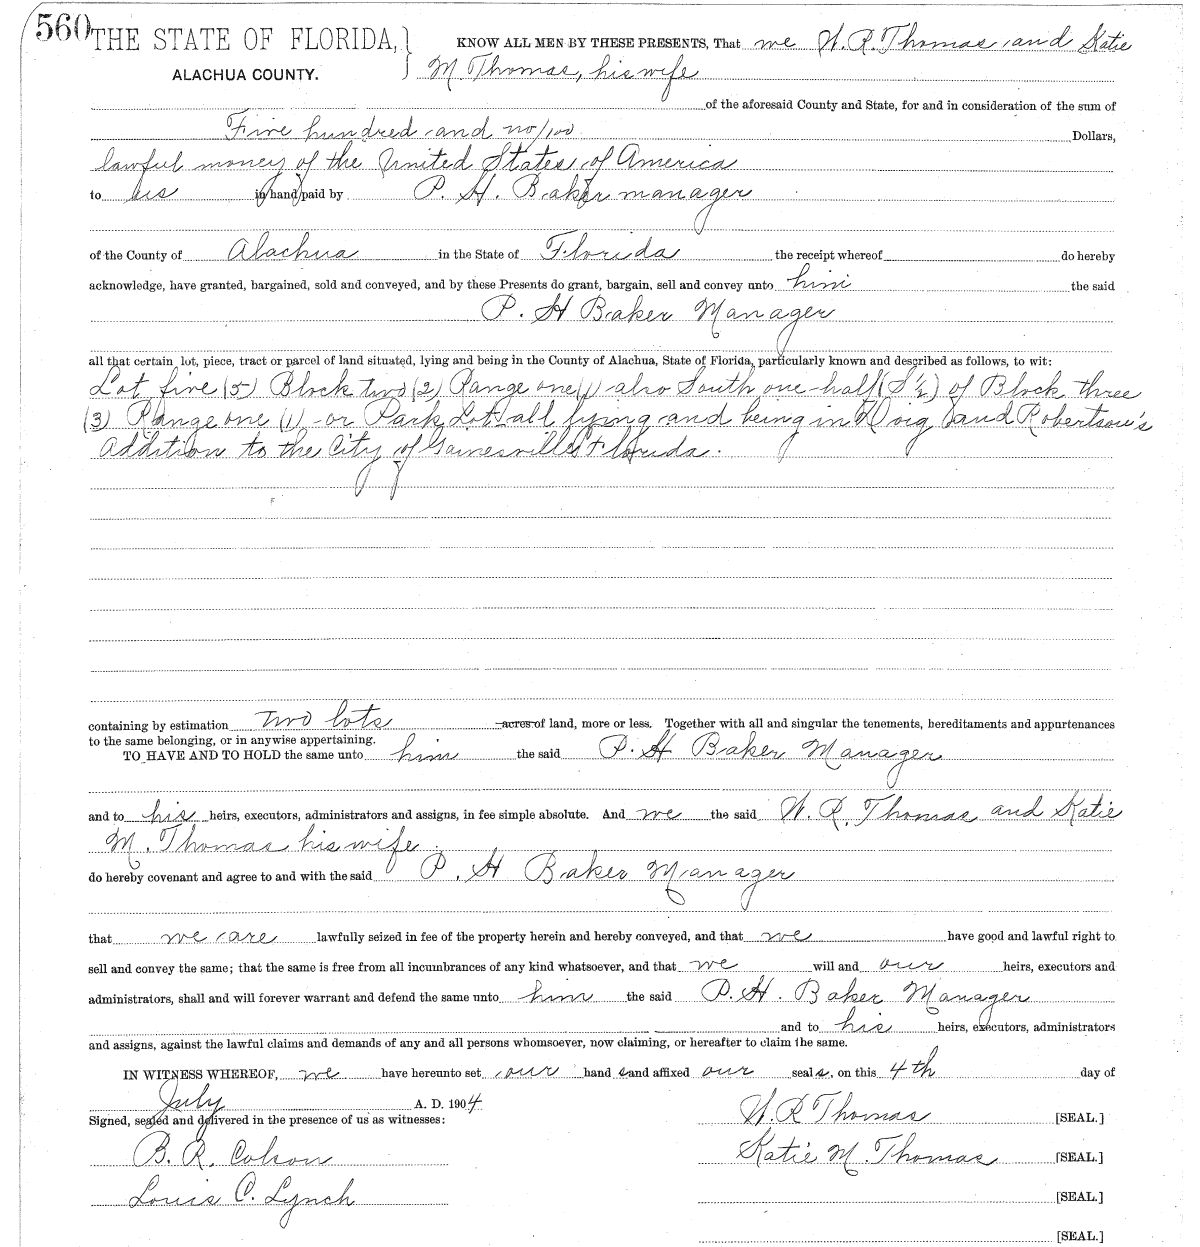 560
THE STATE OF FLORIDA, } KNOW ALL MEN BY THESE PRESENTS, That we W. R. Thomas and Katie
ALACHUA COUNTY. M Thomas, his wife
of the aforesaid County and State, for and in consideration of the sum of
Five hundred and no/100 Dollars,
lawful money of the United States of America
to us in hand paid by P. H. Baker manager
of the County of Alachua in the State of Florida the receipt whereof do hereby
acknowledge, have granted, bargained, sold and conveyed, and by these Presents do grant, bargain, sell and convey unto him the said
P. H Baker Manager
all that certain lot, piece, tract or parcel of land situated, lying and being in the County of Alachua, State of Florida, particularly known and described as follows, to wit:
Lot five (5) Block two (2) Range one (1) also South one-half (S ½) of Block three
(3) Range one (1) or Park Lot all lying and being in Doig and Robertson's
Addition to the City of Gainesville Florida.
containing by estimation two lots acres of land, more or less. Together with all and singular the tenements, hereditaments and appurtenances
to the same belonging, or in anywise appertaining.
TO HAVE AND TO HOLD the same unto him the said P. H Baker Manager
and to his heirs, executors, administrators and assigns, in fee simple absolute. And we the said W. R. Thomas and Katie
M. Thomas his wife
do hereby covenant and agree to and with the said P. H Baker Manager
that we are lawfully seized in fee of the property herein and hereby conveyed, and that we have good and lawful right to
sell and convey the same; that the same is free from all incumbrances of any kind whatsoever, and that we will and our heirs, executors and
administrators, shall and will forever warrant and defend the same unto him the said P. H. Baker Manager
and to his heirs, executors, administrators
and assigns, against the lawful claims and demands of any and all persons whomsoever, now claiming, or hereafter to claim the same.
IN WITNESS WHEREOF, we have hereunto set our hand s and affixed our seal s, on this 4th day of
July A. D. 1904
Signed, sealed and delivered in the presence of us as witnesses: W. R Thomas [SEAL.]
B. R. Colson Katie M. Thomas [SEAL.]
Louis C. Lynch [SEAL.]
[SEAL.]